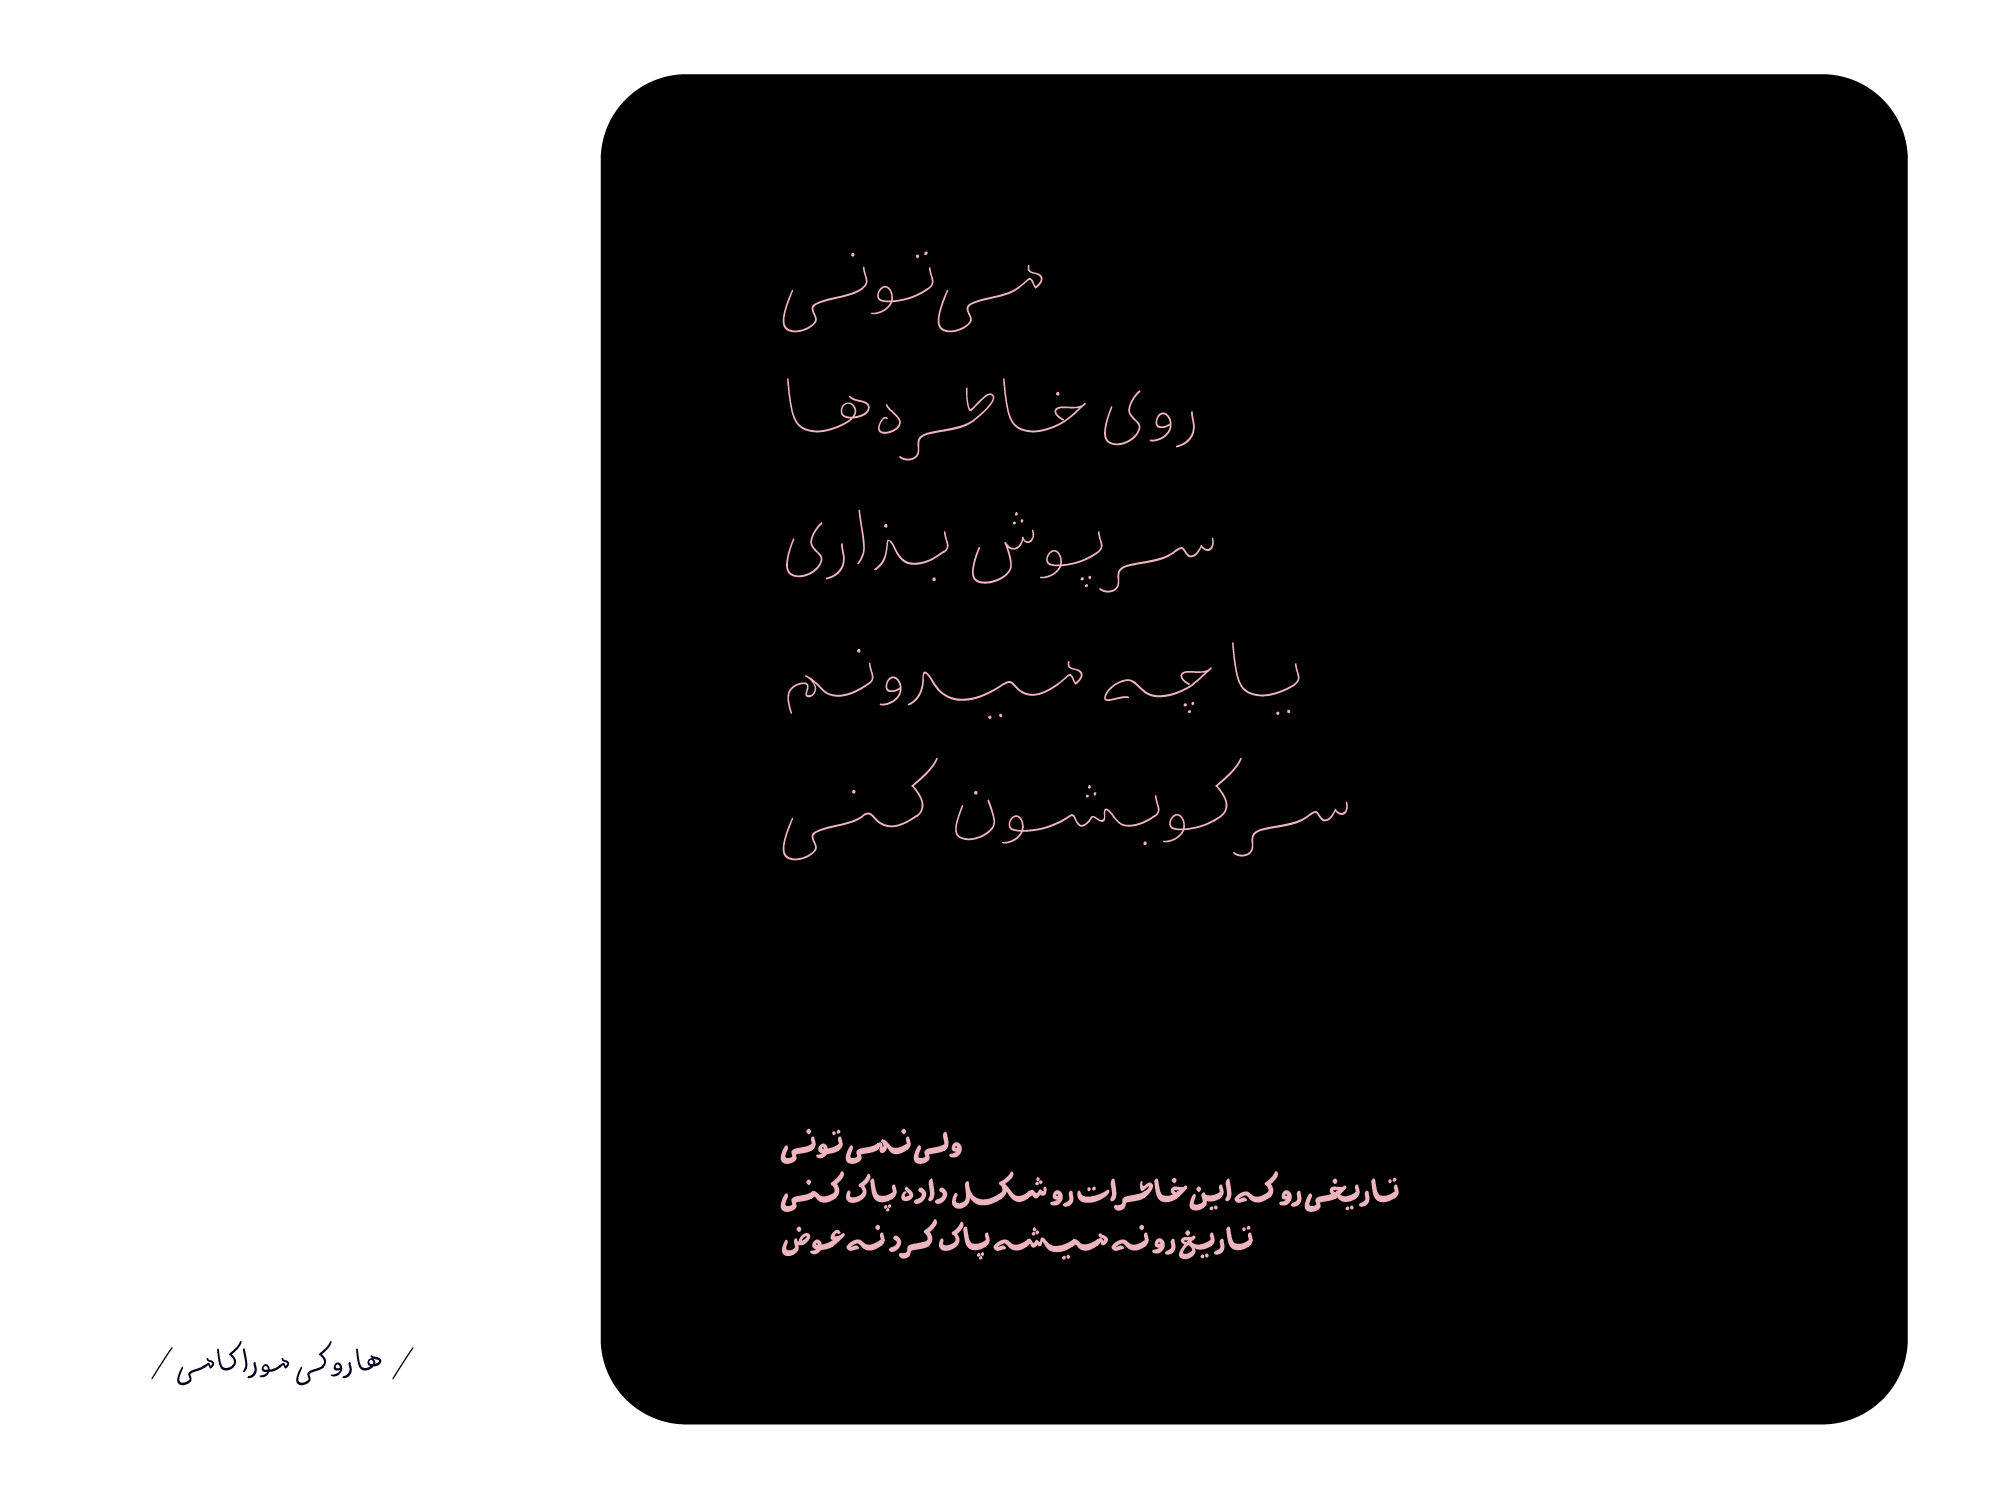 می‌تونی
روی خاطره‌ها
سرپوش بذاری
یا چه میدونم
سرکوبشون کنی
ولی نمی‌تونی
تاریخی رو که این خاطرات رو شکل داده پاک کنی
تاریخ رو نه میشه پاک کرد نه عوض
/ هاروکی موراکامی /